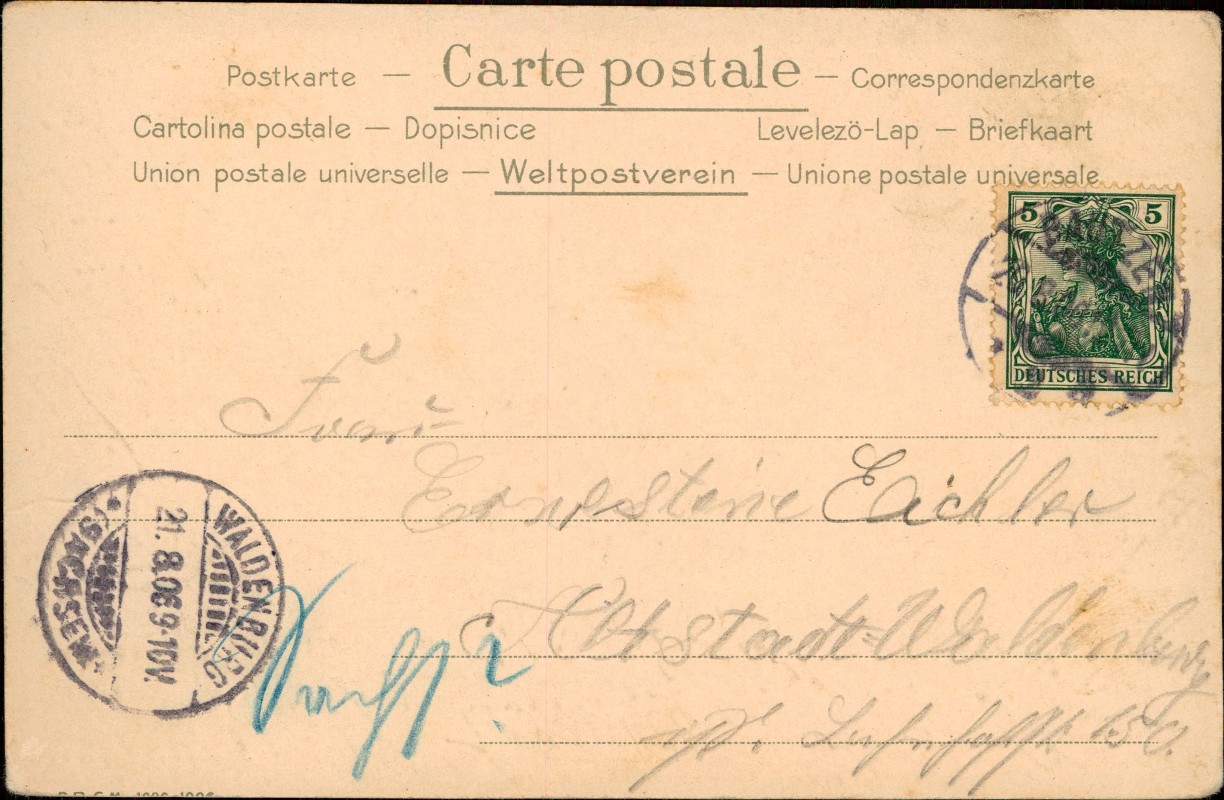 Postkarte — Carte postale — Correspondenzkarte
Cartolina postale — Dopisnice Levelezö-Lap — Briefkaart
Union postale universelle — Weltpostverein — Unione postale universale
5 5
DEUTSCHES REICH
Frau
Ernestine Eichler
Altstadt-Waldenburg
WALDENBURG
21.8.06 9-10V.
*(SACHSEN)*